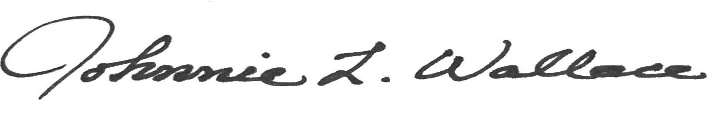 Johnnie L. Wallace